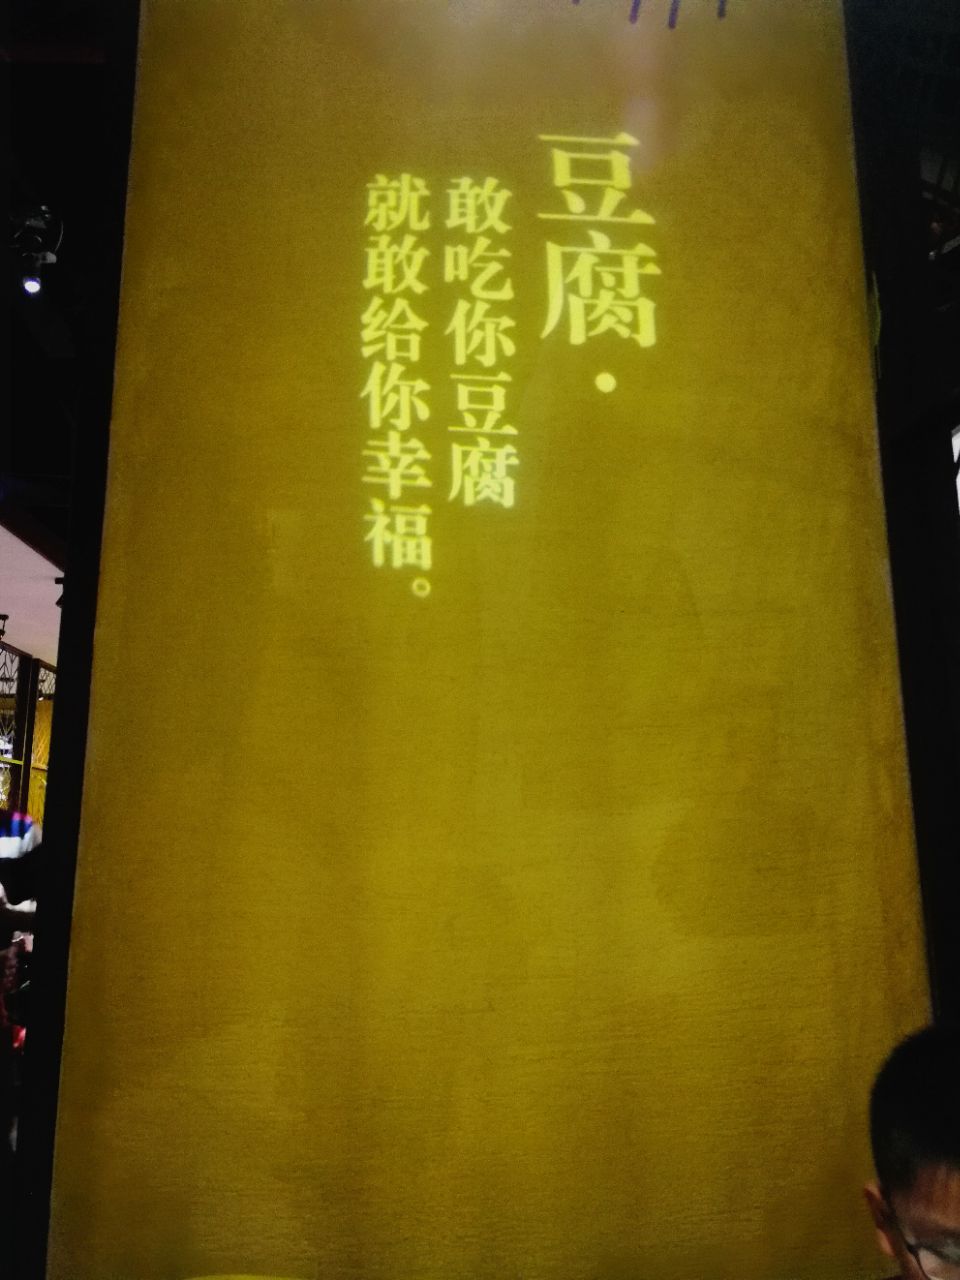 豆腐·
敢吃你豆腐
就敢给你幸福。